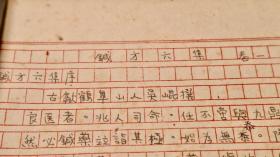 鍼方六集 卷一
鍼方六集序
古歙鶴皋山人吳崐撰
良医者。兆人司命。任不
我必鍼藥並詣其極。始為無